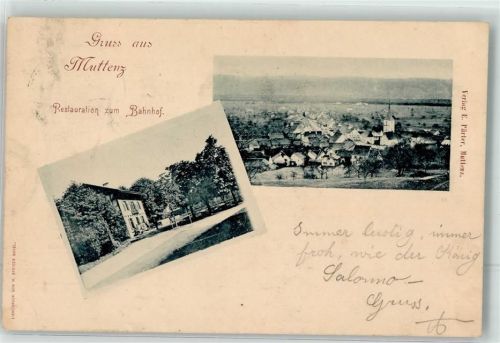 Gruss aus
Muttenz
Restauration zum Bahnhof.
Verlag E. Pfirter, Muttenz.
Immer lustig, immer
froh, wie der König
Salomo—
Gruss.